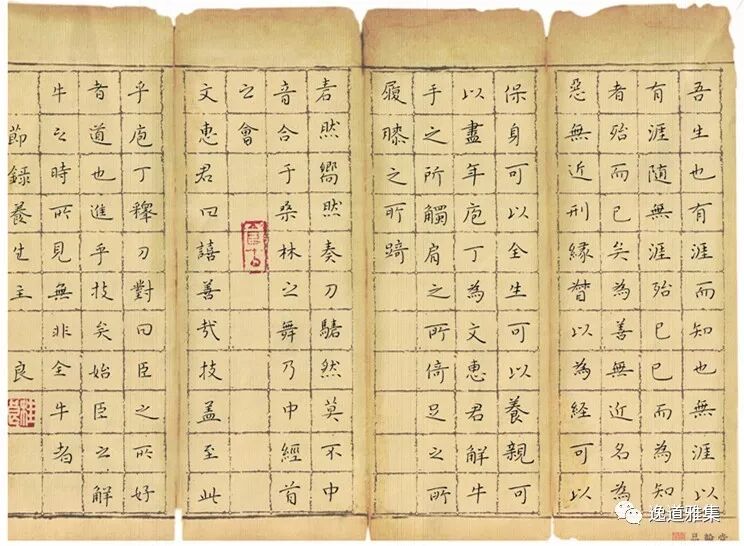 吾生也有涯而知也無涯以
有涯隨無涯殆已已而為知
者殆而已矣為善無近名為
惡無近刑緣督以為經可以
保身可以全生可以養親可
以盡年庖丁為文惠君解牛
手之所觸肩之所倚足之所
履膝之所踦
砉然嚮然奏刀騞然莫不中
音合于桑林之舞乃中經首
之會
文惠君曰譆善哉技蓋至此
乎庖丁釋刀對曰臣之所好
者道也進乎技矣始臣之解
牛之時所見無非全牛者
節錄養生主 良
逸道雅集